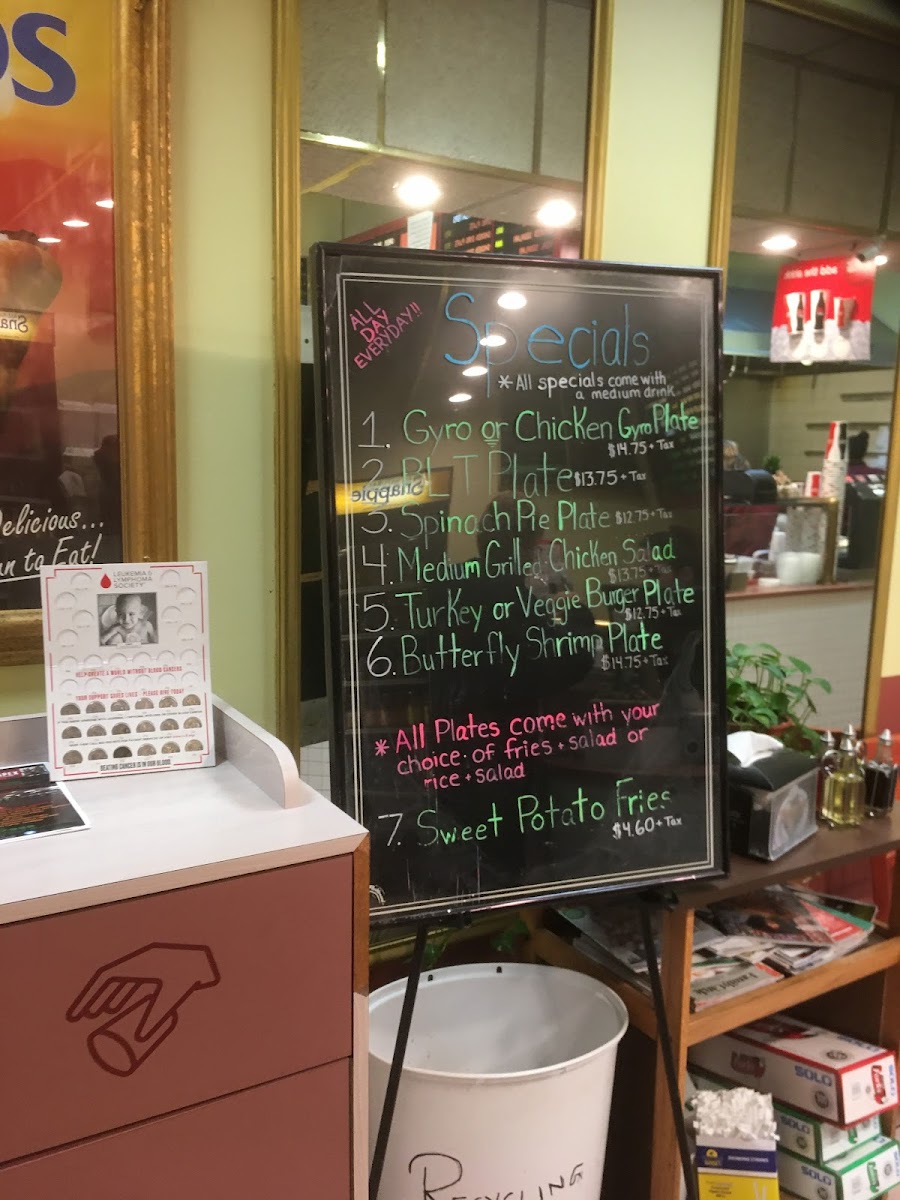 DS
Delicious...
an to Eat!
LEUKEMIA &
LYMPHOMA
SOCIETY
HELP CREATE A WORLD WITHOUT BLOOD CANCERS
YOUR SUPPORT SAVES LIVES PLEASE GIVE TODAY
BEATING CANCER IS IN OUR BLOOD.
ALL
DAY
EVERYDAY!!
Specials
*All specials come with
a medium drink
1. Gyro or Chicken Gyro Plate
$14.75 + Tax
2. BLT Plate $13.75 + Tax
Snapple
3. Spinach Pie Plate $12.75 + Tax
4. Medium Grilled Chicken Salad
$13.75 + Tax
5. Turkey or Veggie Burger Plate
$12.75 + Tax
6. Butterfly Shrimp Plate
$14.75 + Tax
*All Plates come with your
choice of fries + salad or
rice + salad
7. Sweet Potato Fries
$4.60 + Tax
RECYCLING
SOLO
SOLO
SOLO